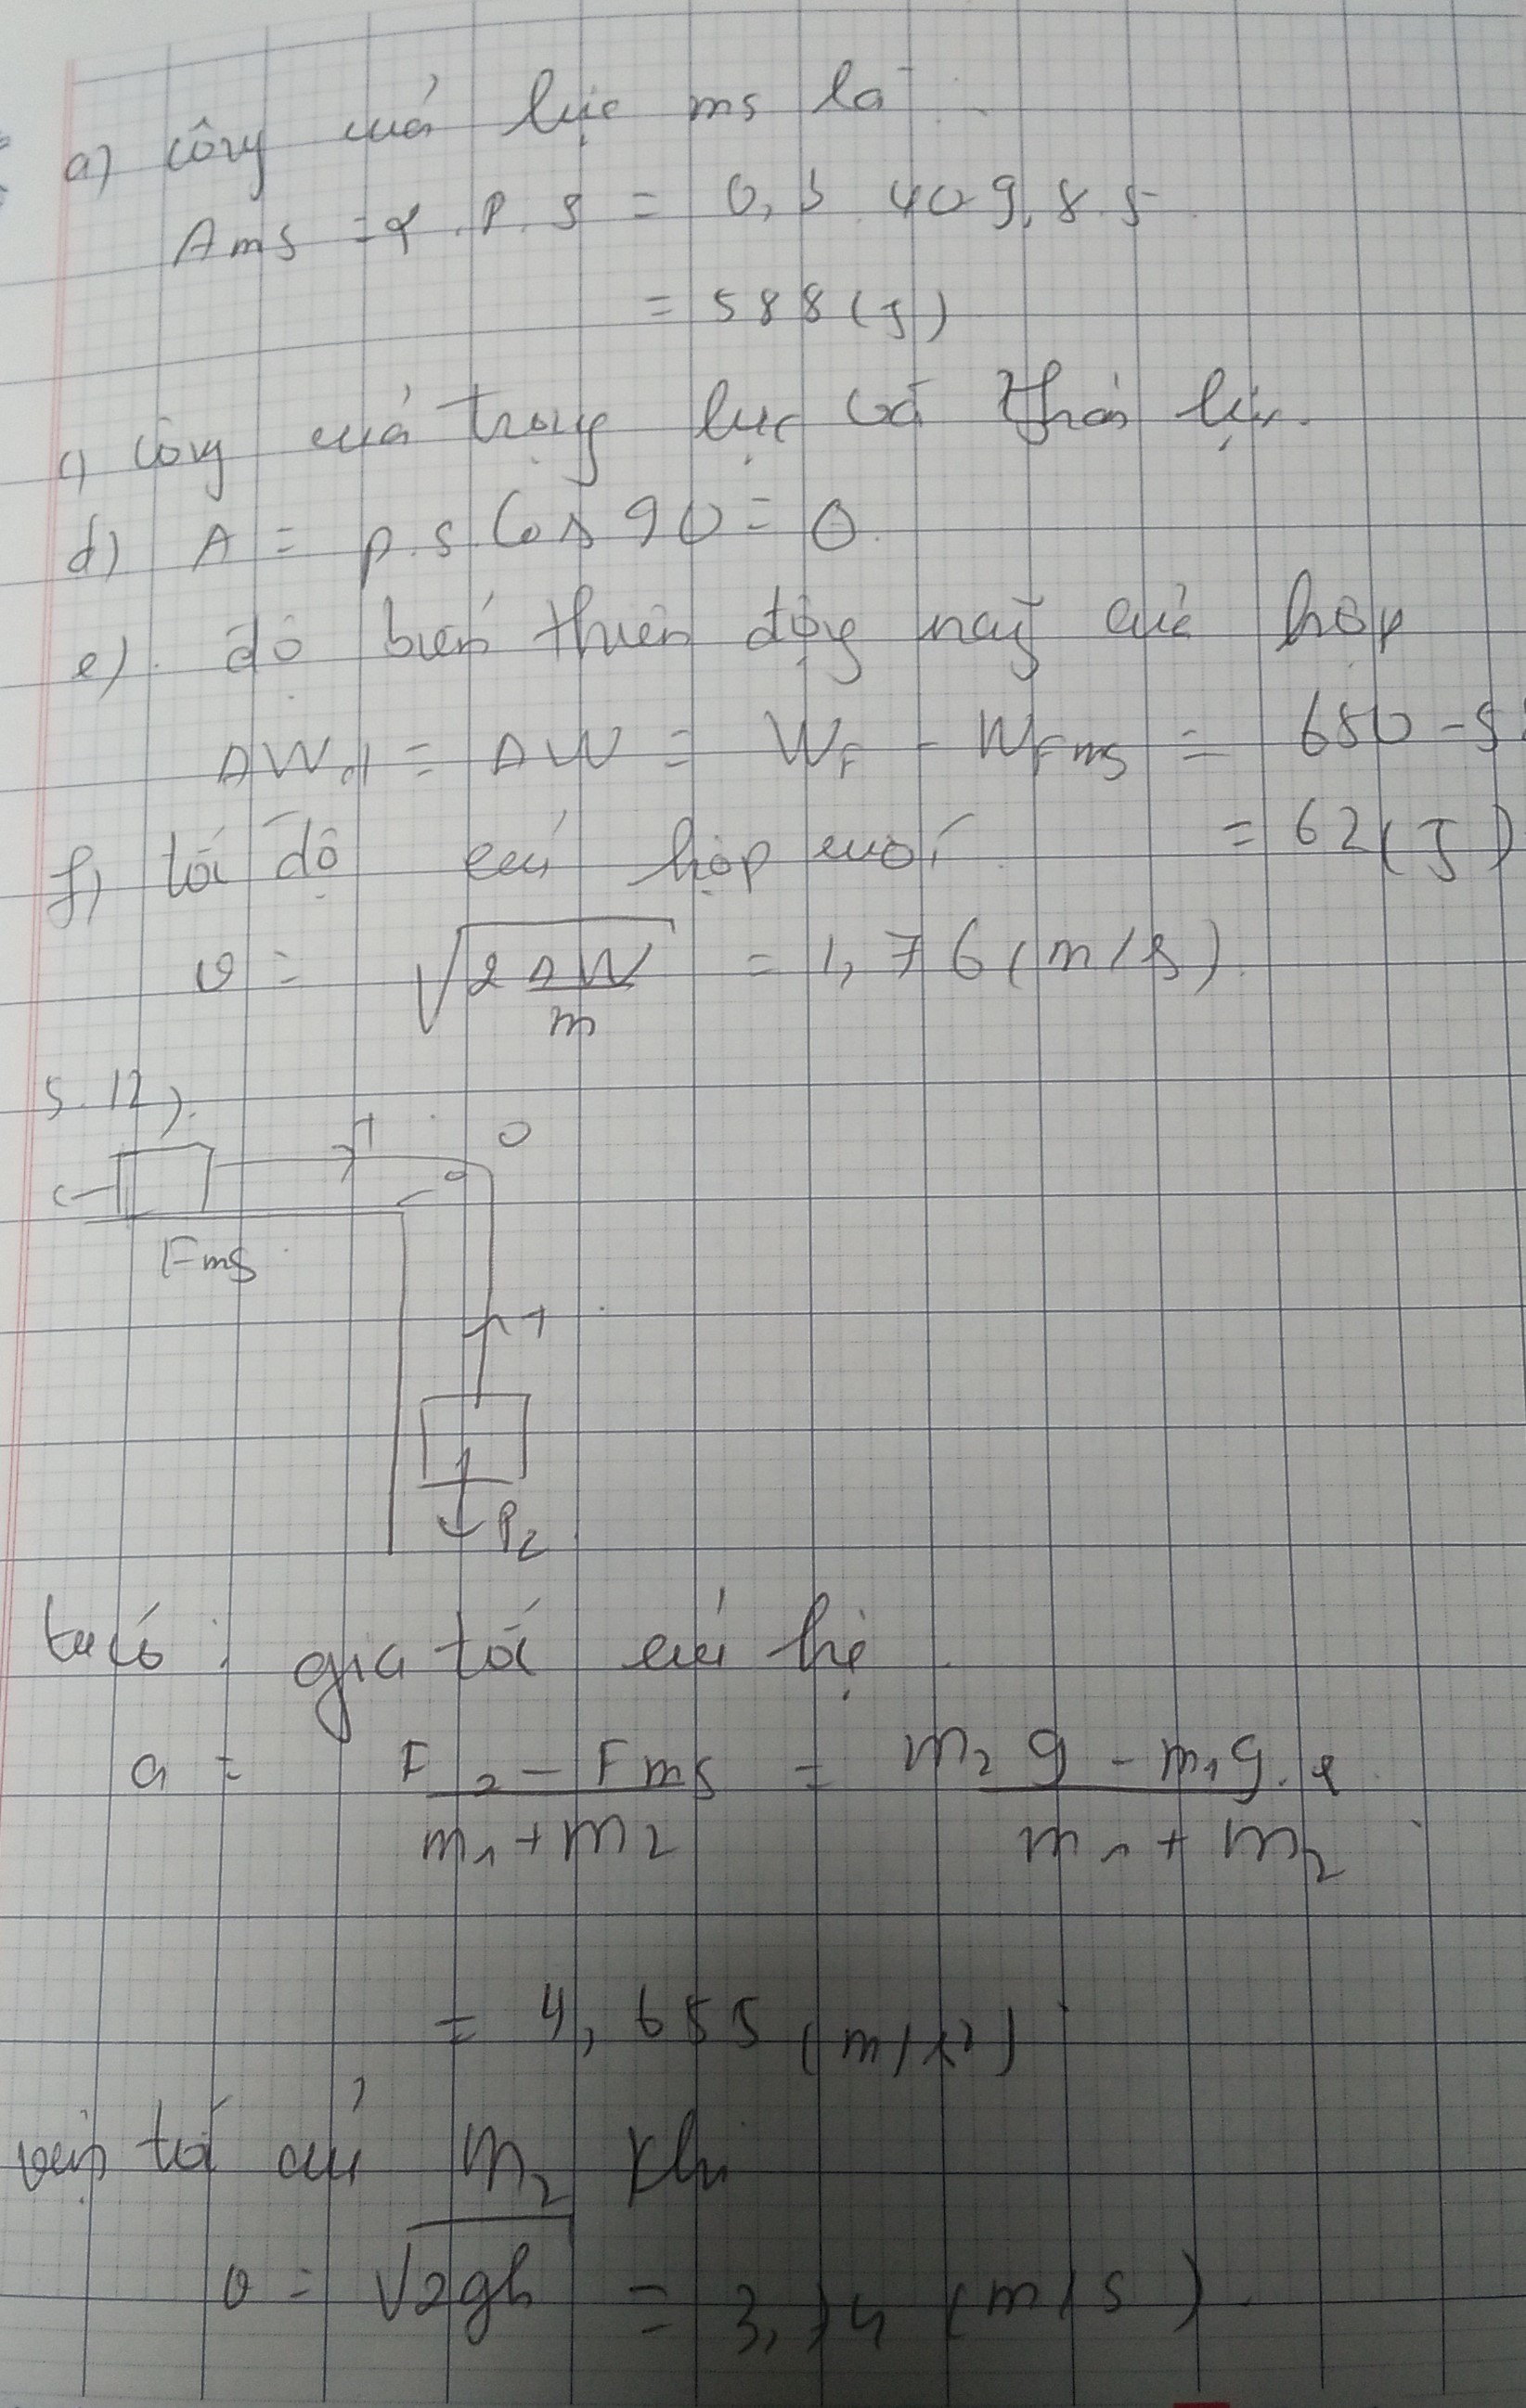 a) công của lực ms là
Ams = α . P . s = 0,3 . 40 9,8 . 5
= 588 (J)
c) công của trọng lực và
d) A = p . s . Cos 90 = 0
e) độ biến thiên động năg của hộp
ΔWđ = ΔW = WF - WFms = 650 - 5
= 62 (J)
f) tốc độ của hộp cuối
v = √2ΔW/m = 1,76 (m/s)
5.12)
T
O
Fms
T
P2
ta có : gia tốc của hệ
a = F2 - Fms / m1 + m2 = m2 g - m1 g . / m1 + m2
= 4,655 (m/s²)
vận tốc của m2 khi
v = √2gh = (m/s)